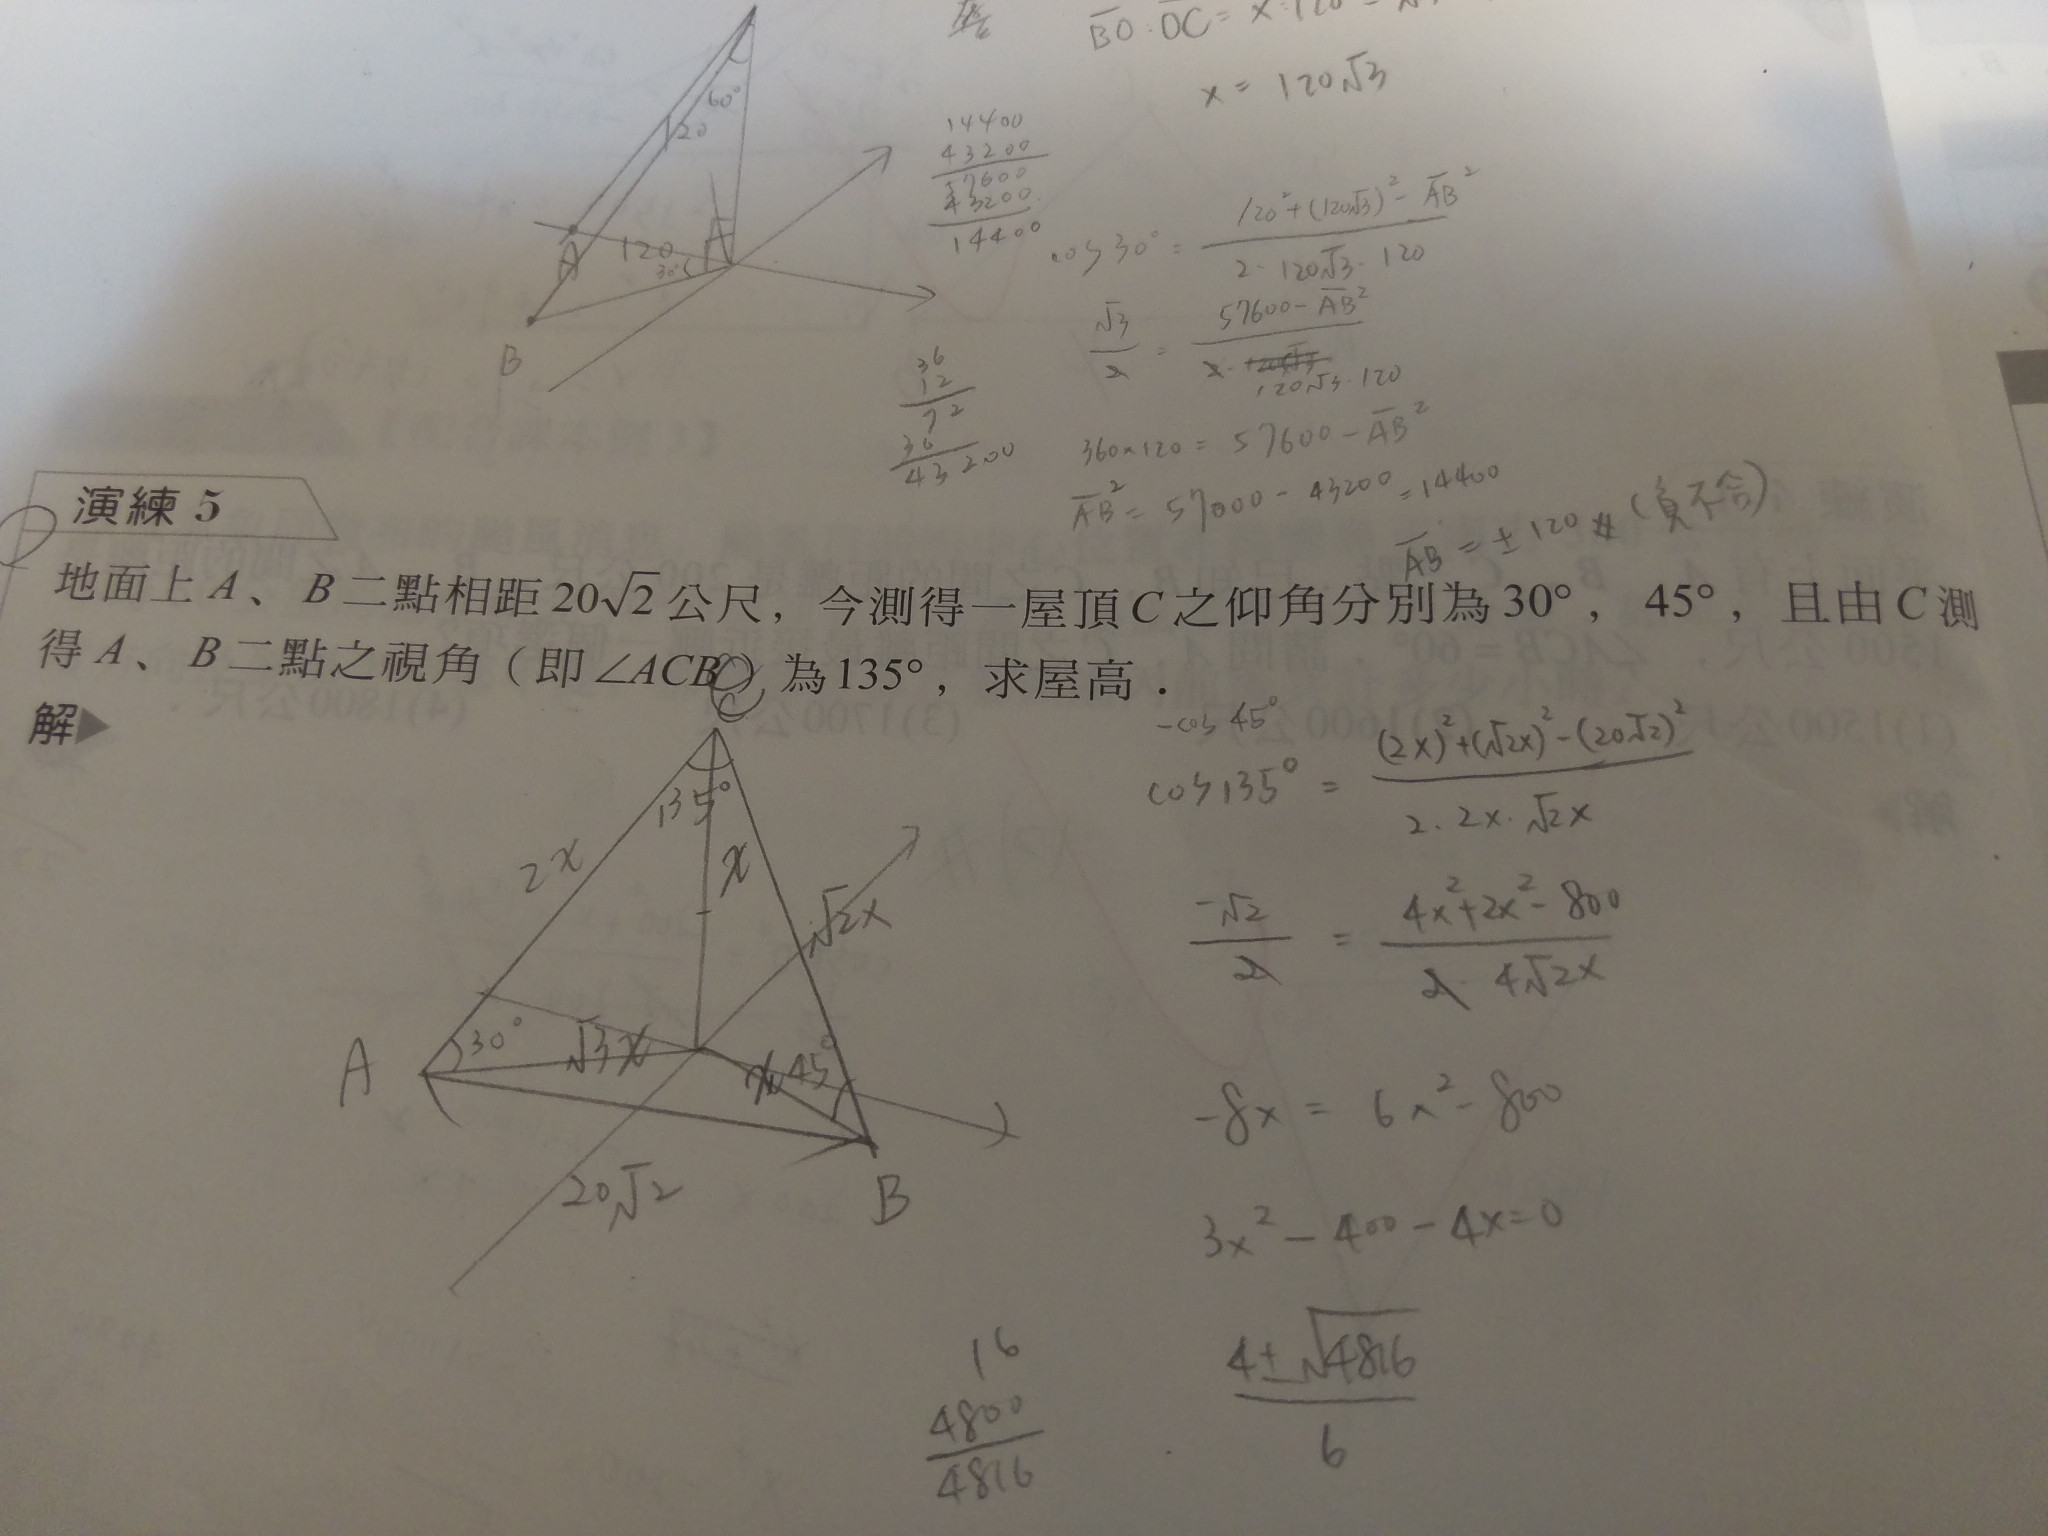 答
BO : OC = x : 120 =
x = 120√3
60°
120
A
120
30°
B
14400
43200
57600
43200
14400
cos30° = 120² + (120√3)² - AB² / 2 · 120√3 · 120
√3/2 = 57600 - AB² / 2 · 120√3 · 120
36
12
72
36
43200
360×120 = 57600 - AB²
AB² = 57600 - 43200 = 14400
AB = ±120 # (負不合)
演練 5
地面上 A、B 二點相距 20√2 公尺，今測得一屋頂 C 之仰角分別為 30°，45°，且由 C 測
得 A、B 二點之視角（即∠ACB）為 135°，求屋高．
解▶
C
135°
2x
x
√2x
30°
√3x
x
45°
A
B
20√2
-cos45°
cos135° = (2x)² + (√2x)² - (20√2)² / 2 · 2x · √2x
-√2/2 = 4x² + 2x² - 800 / 2 · 4√2x
-8x = 6x² - 800
3x² - 400 - 4x = 0
4±√4816 / 6
16
4800
4816